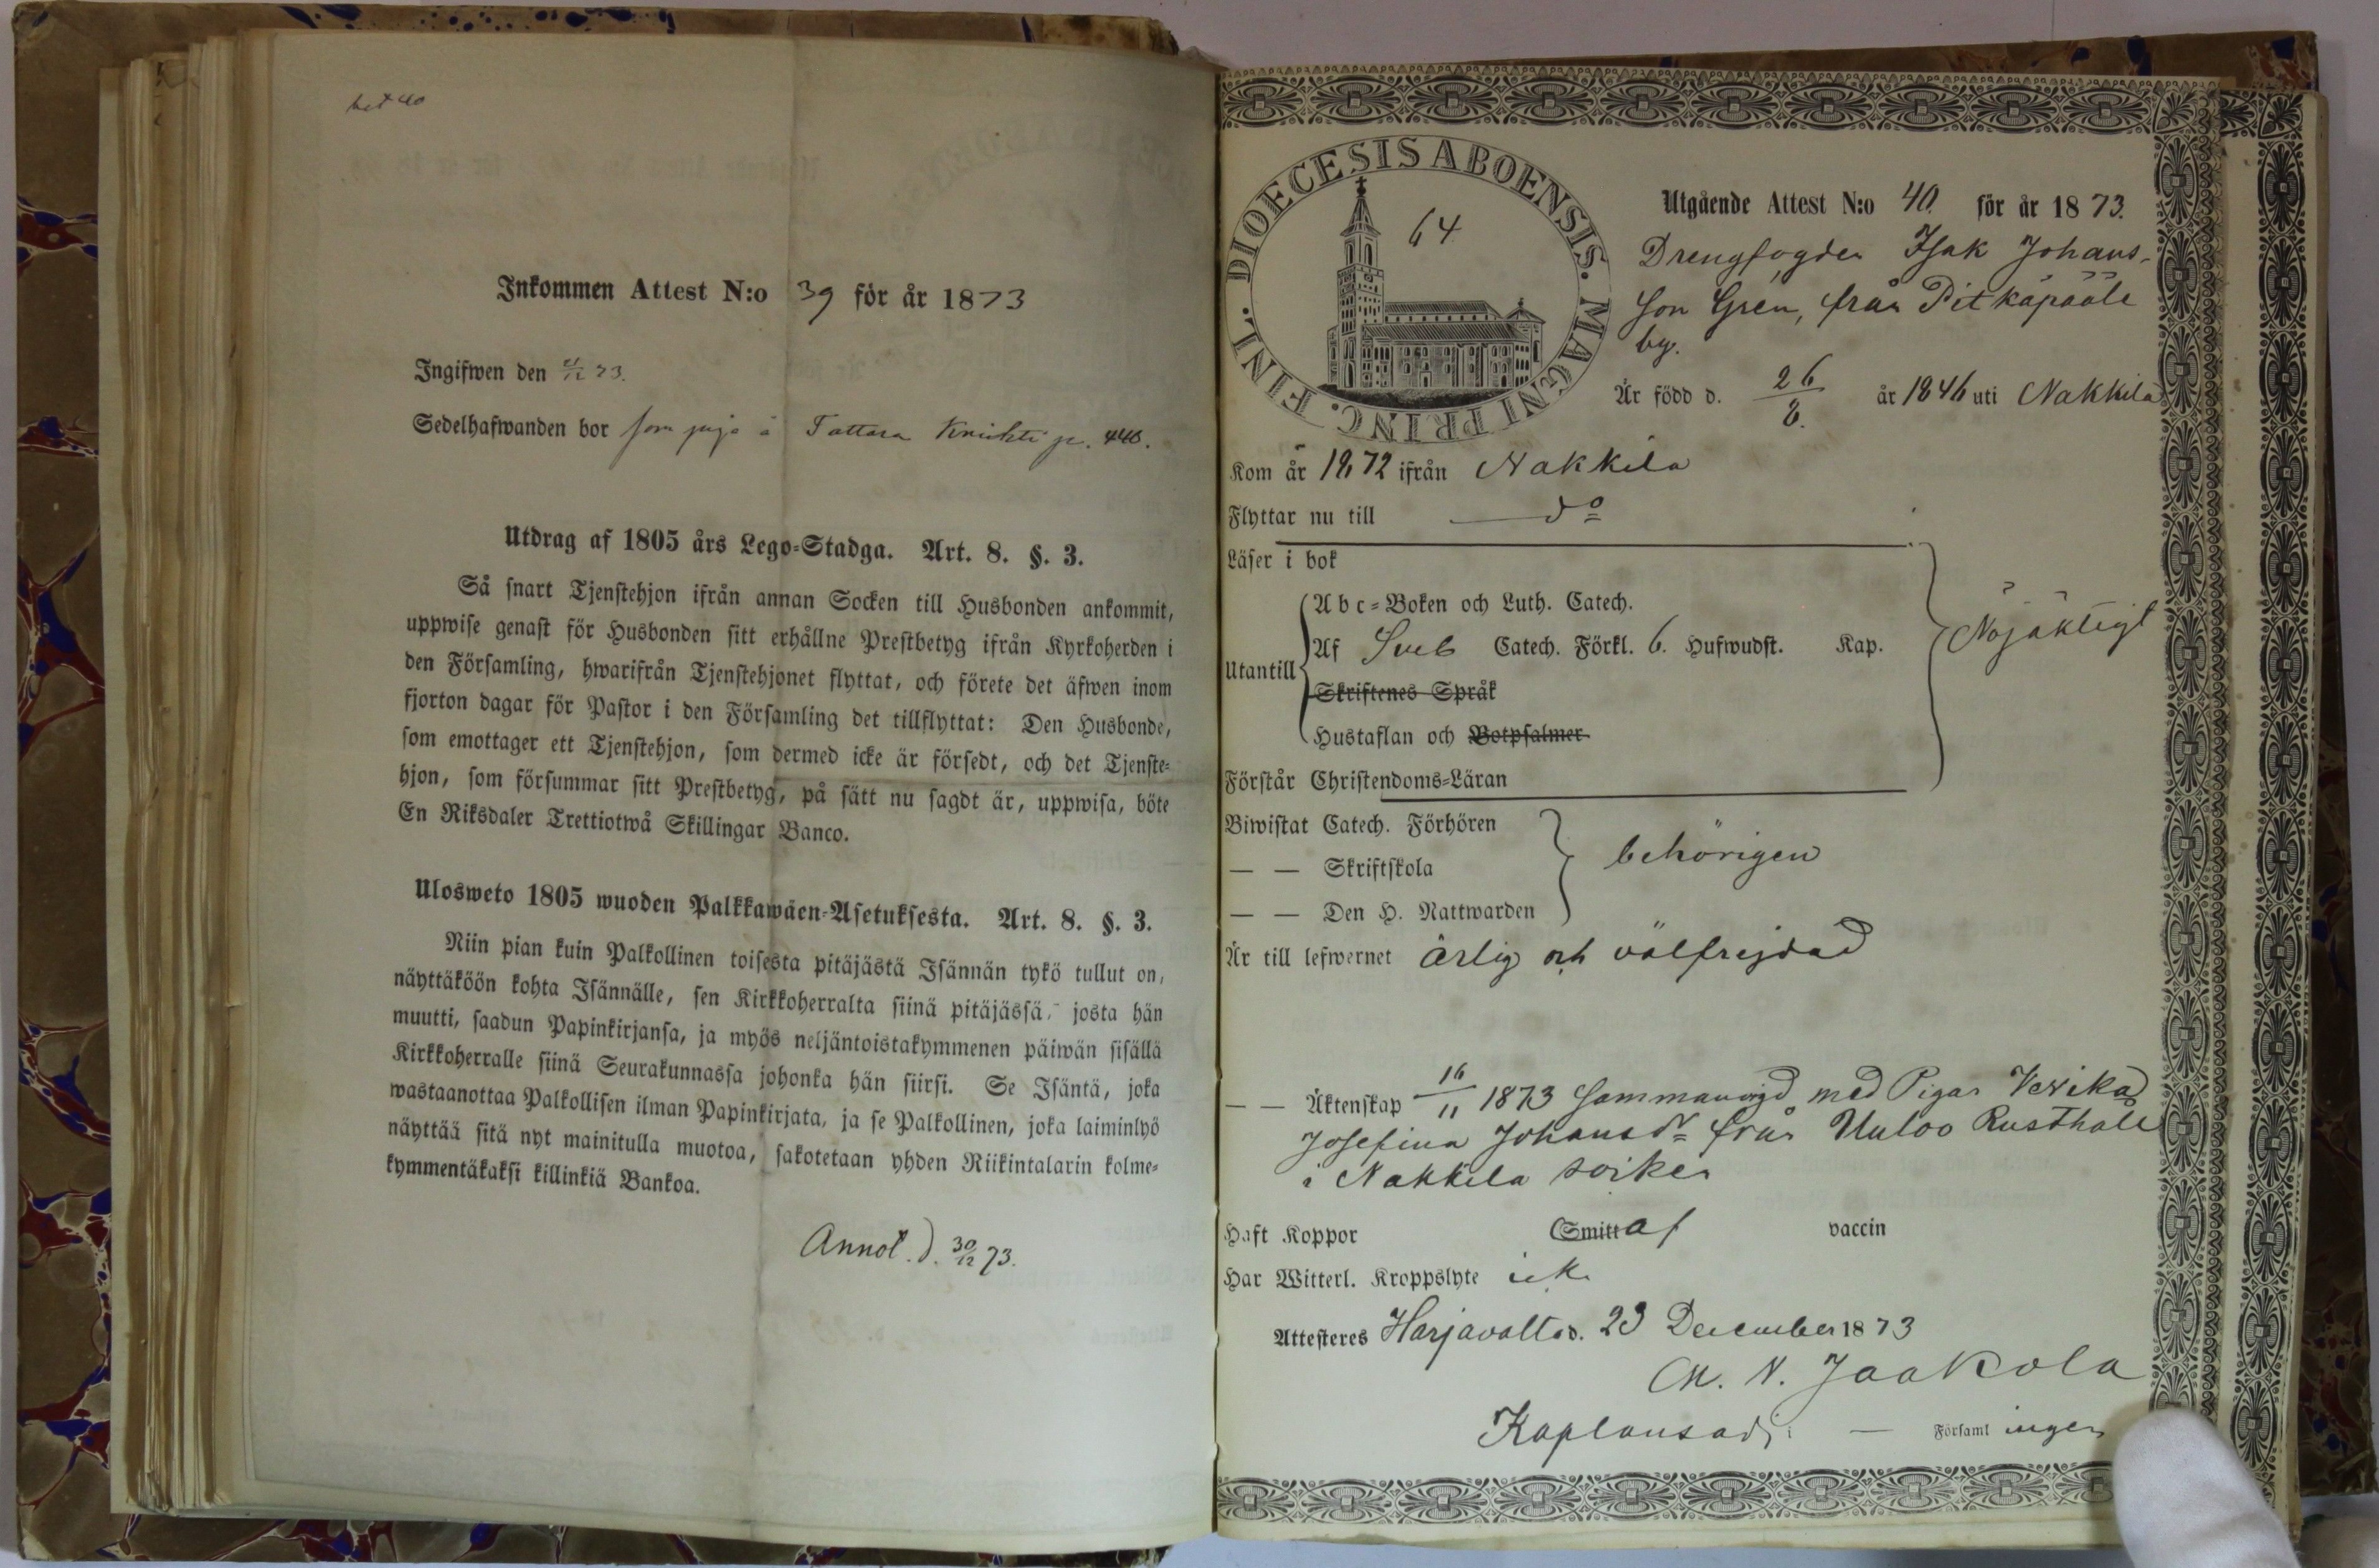 Inkommen Attest N:o 39 för år 1873
Ingifwen den 73.
Sedelhafwanden bor som piga å Tattara Knichti p. 440.
Utdrag af 1805 års Lego-Stadga. Art. 8. §. 3.
Så snart Tjenstehjon ifrån annan Socken till Husbonden ankommit,
uppwise genast för Husbonden sitt erhållne Prestbetyg ifrån Kyrkoherden i
den Församling, hwarifrån Tjenstehjonet flyttat, och förete det äfwen inom
fjorton dagar för Pastor i den Församling det tillflyttat: Den Husbonde,
som emottager ett Tjenstehjon, som dermed icke är försedt, och det Tjenste-
hjon, som försummar sitt Prestbetyg, på sätt nu sagdt är, uppwisa, böte
En Riksdaler Trettiotwå Skillingar Banco.
Ulosweto 1805 wuoden Palkkawäen-Asetuksesta. Art. 8. §. 3.
Niin pian kuin Palkollinen toisesta pitäjästä Isännän tykö tullut on,
näyttäköön kohta Isännälle, sen Kirkkoherralta siinä pitäjässä, josta hän
muutti, saadun Papinkirjansa, ja myös neljäntoistakymmenen päiwän sisällä
Kirkkoherralle siinä Seurakunnassa johonka hän siirsi. Se Isäntä, joka
wastaanottaa Palkollisen ilman Papinkirjata, ja se Palkollinen, joka laiminlyö
näyttää sitä nyt mainitulla muotoa, sakotetaan yhden Riikintalarin kolme-
kymmentäkaksi killinkiä Bankoa.
Annot. d. 30/12 73.
FINL. DIOECESIS ABOENSIS. MAGNI PRINC.
64
Utgående Attest N:o 40. för år 1873.
Drengfogden Isak Johans-
son Gren, från Pitkäpäälä
by.
Är född d. 26/8. år 1846 uti Nakkila
Kom år 1872 ifrån Nakkila
Flyttar nu till — do
Läser i bok
Abc-Boken och Luth. Catech.
Af Sveb Catech. Förkl. 6. Hufwudst. Kap.
Utantill
Skriftenes Språk
Hustaflan och Botpsalmer
Nöjaktigt
Förstår Christendoms-Läran
Biwistat Catech. Förhören
— — Skriftskola
behörigen
— — Den H. Nattwarden
Är till lefwernet ärlig och välfrejdad
— — Äktenskap 16/11 1873 Sammanvigd med Pigan Verika
Josefina Johansdr från Uuloo Rusthåll
i Nakkila socken
Haft Koppor Smitt af vaccin
Har Witterl. Kroppslyte ick.
Attesteres Harjavalta d. 23 December 1873
M. N. Jaakola
Kaplansadj. i — Församlingen